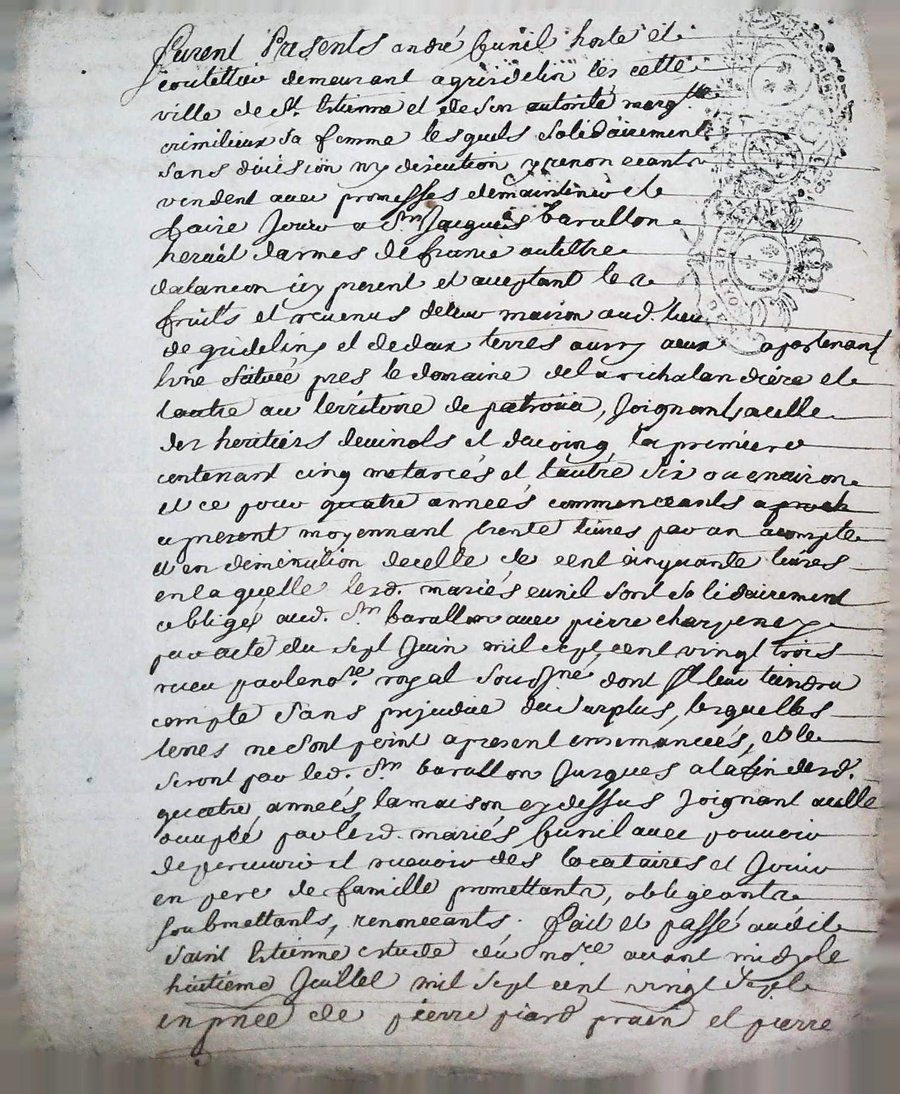 furent Presents andré Cunil hoste et
coutellier demeurant a gridelin les cette
ville de St. Estienne et de son autorité margte
crimilieux sa femme lesquels solidairement
sans division ny discution y renonceants
vendent avec promesses de maintenir et
faire Jouir a Sr. Jacques barallon
herault darmes de france au tiltre
dalancon icy present et aceptant les
fruits et revenus de leur maison aud. lieu
de gridelins et de deux terres aussy a eux apartenant
lune située pres le domaine de la richalandiere et
lautre au territoire de patroüa, Joignants a celle
des heritiers de et la premiere
contenant cinq metareés et lautre six ou environ
et ce pour quatre années commenceants
a present moyennant trente livres par an a compte
et en diminution de celle de cent cinquante livres
en la quelle lesd. mariés cunil sont solidairement
obligés aud. Sr. barallon avec pierre
par acte du sept Juin mil sept cent vingt trois
receu par le nore. royal soussne. dont Il leur tiendra
compte sans prejudice du surplus, lesquelles
terres ne sont point a present ensemanceés, et le
seront par led. Sr. barallon Jusques a la fin desd.
quatre années, la maison cy dessus Joignant a celle
occupée par lesd. mariés Cunil avec pouvoir
de percevoir et recevoir des locataires et Jouir
en pere de famille promettants, obligeants
soubmettants, renonceants. fait et passé audit
saint Estienne estude du nore. avant midy le
huitieme Juillet mil sept cent vingt sept
en pnce de pierre piard et pierre